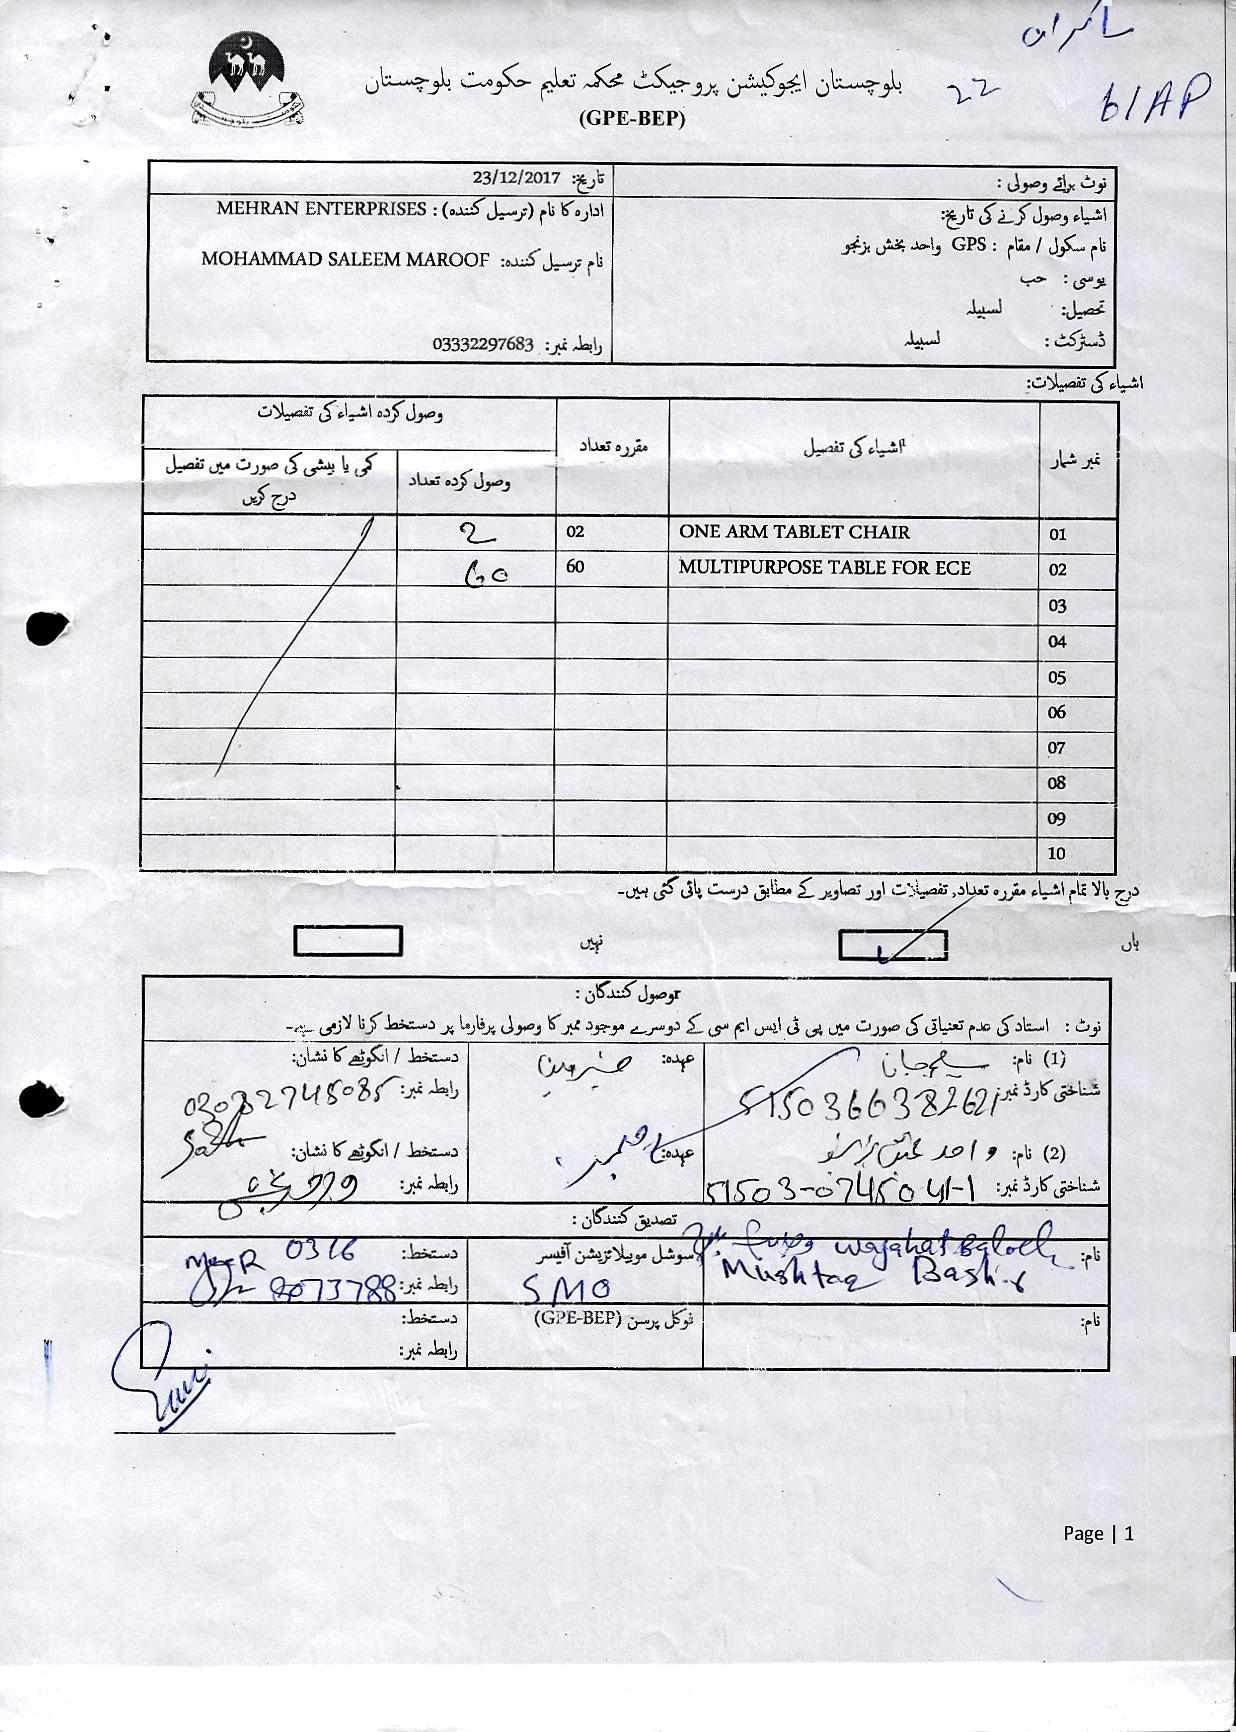 ساکران
22
61AP
بلوچستان ایجوکیشن پروجیکٹ محکمہ تعلیم حکومت بلوچستان
(GPE-BEP)
نوٹ برائے وصولی :
تاریخ: 23/12/2017
اشیاء وصول کرنے کی تاریخ:
نام سکول / مقام : GPS واحد بخش بزنجو
یوسی : حب
تحصیل: لسبیلہ
ڈسٹرکٹ : لسبیلہ
ادارہ کا نام (ترسیل کنندہ) : MEHRAN ENTERPRISES
نام ترسیل کنندہ: MOHAMMAD SALEEM MAROOF
رابطہ نمبر: 03332297683
اشیاء کی تفصیلات:
نمبر شمار اشیاء کی تفصیل مقررہ تعداد وصول کردہ اشیاء کی تفصیلات
وصول کردہ تعداد کمی یا بیشی کی صورت میں تفصیل درج کریں
01 ONE ARM TABLET CHAIR 02 2
02 MULTIPURPOSE TABLE FOR ECE 60 60
03
04
05
06
07
08
09
10
درج بالا تمام اشیاء مقررہ تعداد, تفصیلات اور تصاویر کے مطابق درست پائی گئی ہیں۔
ہاں نہیں
وصول کنندگان :
نوٹ : استاد کی عدم تعنیاتی کی صورت میں پی ٹی ایس ایم سی کے دوسرے موجود ممبر کا وصولی پرفارما پر دستخط کرنا لازمی ہے۔
(1) نام: عہدہ: چیئرمین دستخط / انگوٹھے کا نشان:
شناختی کارڈ نمبر: 5150366382621 رابطہ نمبر: 03082745085
(2) نام: واحد بخش عہدہ: دستخط / انگوٹھے کا نشان:
شناختی کارڈ نمبر: 51503-0745041-1 رابطہ نمبر:
تصدیق کنندگان :
نام: Wajahat Baloch سوشل موبیلائزیشن آفیسر دستخط: 0316
Mushtaq Bashir SMO رابطہ نمبر: 8073788
نام: فوکل پرسن (GPE-BEP) دستخط:
رابطہ نمبر:
Page | 1